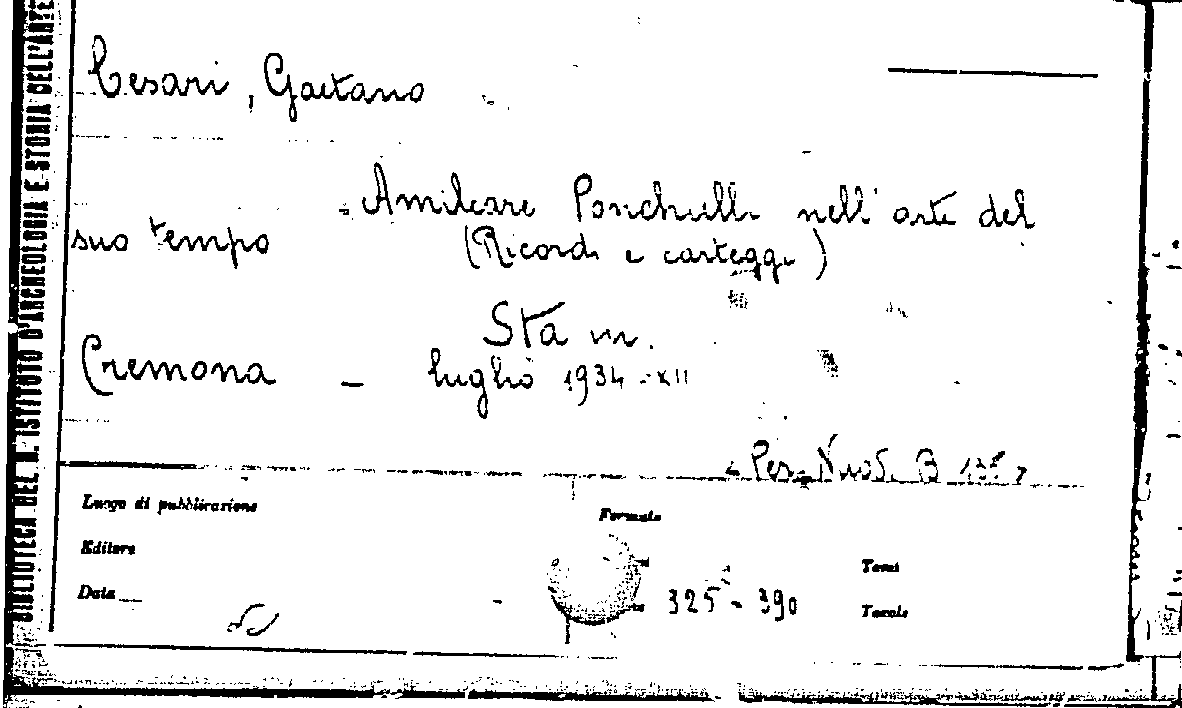 BIBLIOTECA DEL R. ISTITUTO D'ARCHEOLOGIA E STORIA DELL'ARTE
Cesari, Gaetano
- Amilcare Ponchielli nell'arte del
suo tempo (Ricordi e carteggi)
Sta in.
Cremona - luglio 1934-XII
Luogo di pubblicazione
Formato
Editore
Tomi
Data
325 - 390
Tavole